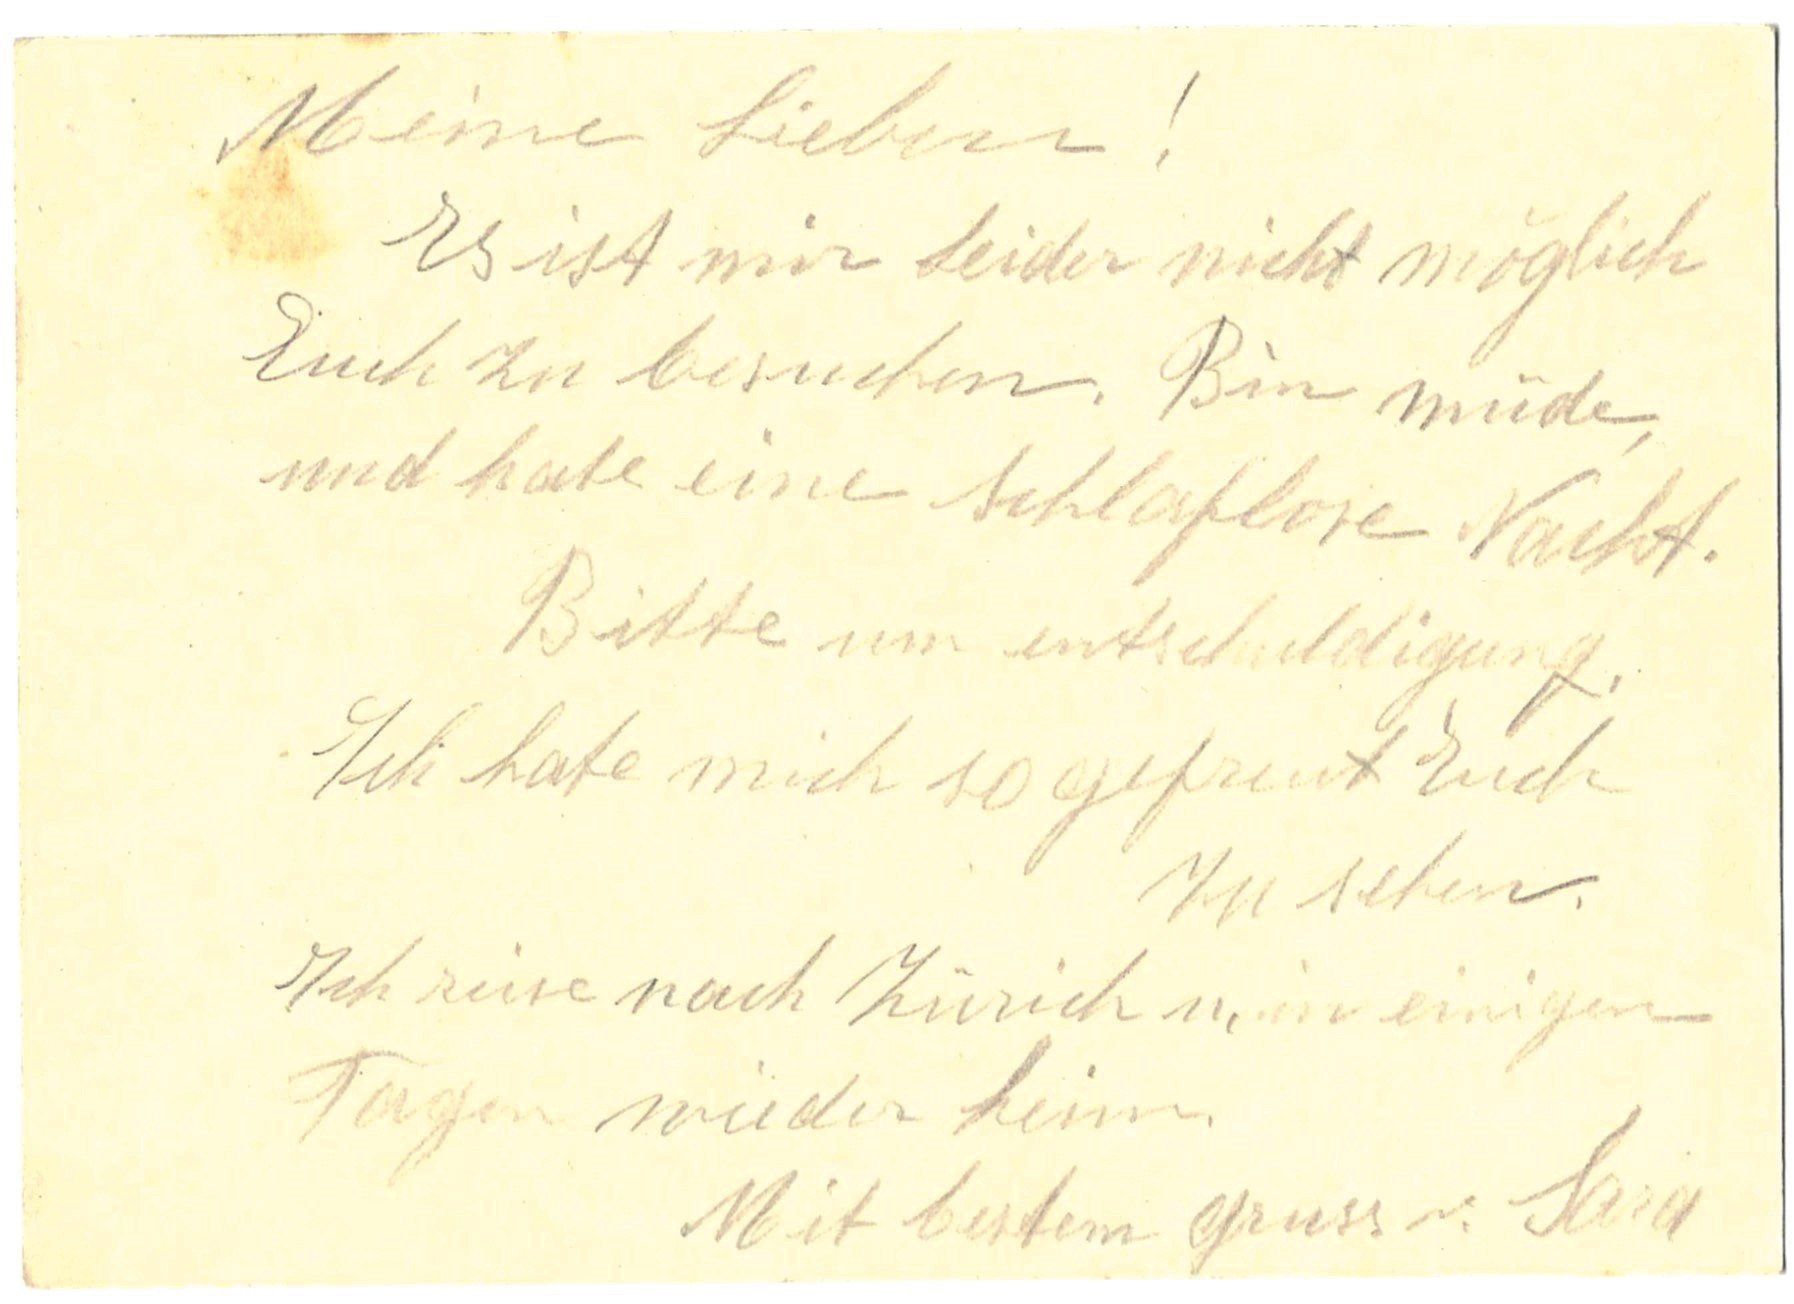 Meine Lieben!
Es ist mir Leider nicht möglich
Euch zu besuchen. Bin müde,
und hate eine schlaflose Nacht.
Bitte um entschuldigung.
Ich hate mich so gefreut Euch
zu sehen.
Ich reise nach Zürich u. in einigen
Tagen wieder heim.
Mit bestem gruss v. Sara